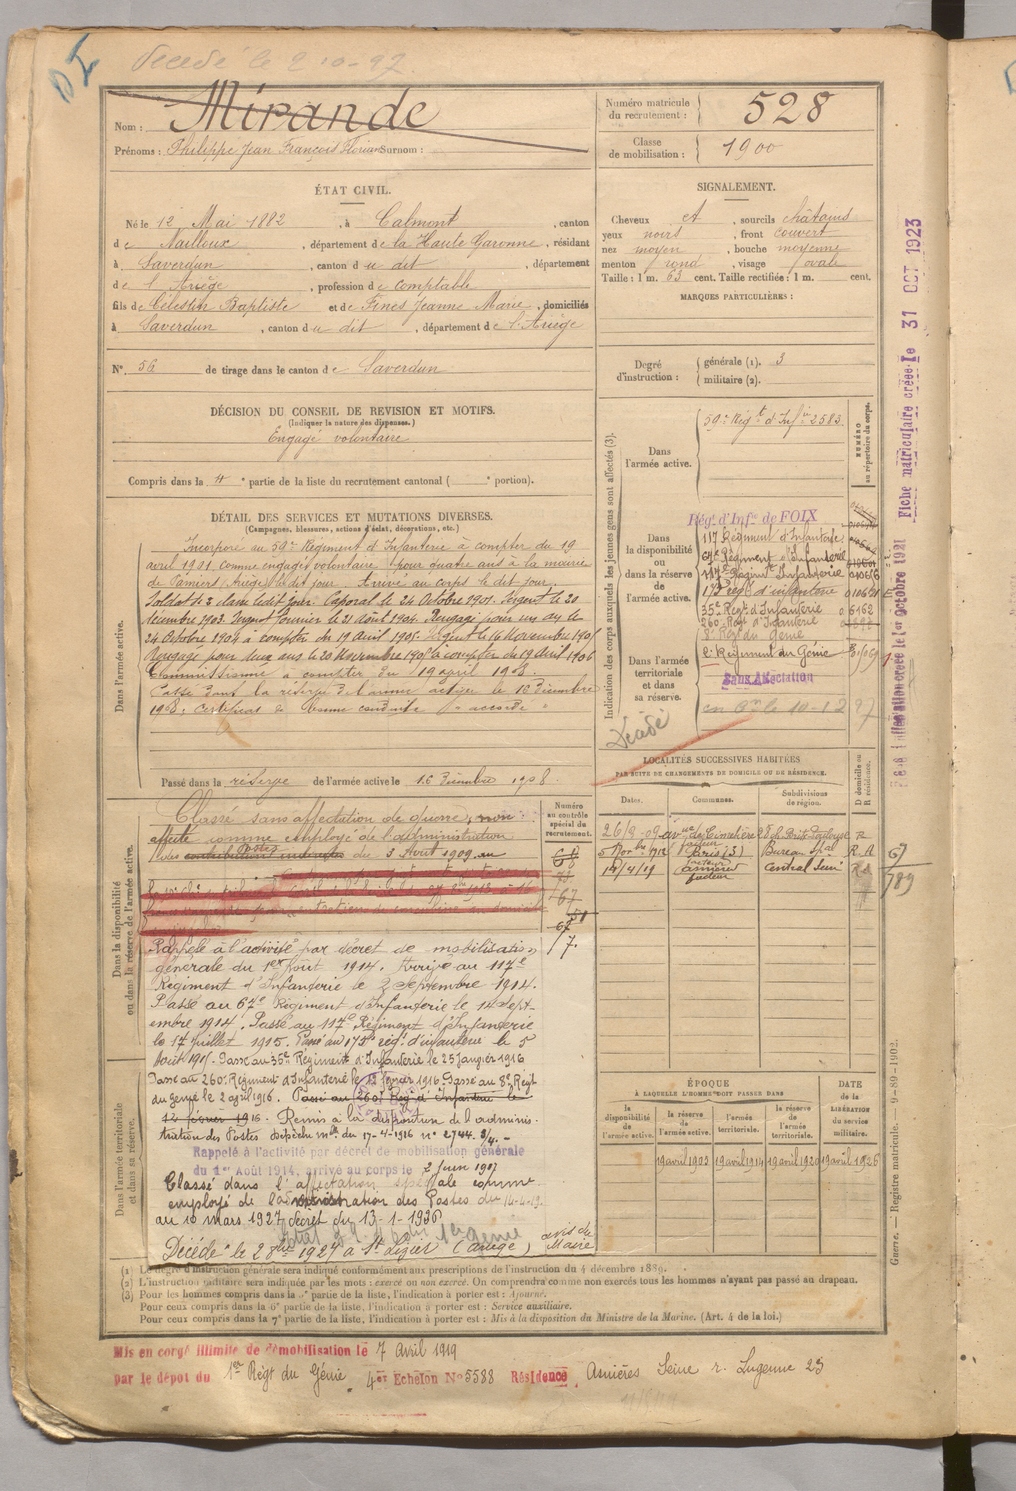 décédé le 2-10-27.
Nom : Mirande
Prénoms : Philippe Jean François Florian Surnom :
Numéro matricule du recrutement : 528
Classe de mobilisation : 1900
ÉTAT CIVIL.
Né le 12 Mai 1882, à Calmont, canton
de Nailloux, département de la Haute Garonne, résidant
à Saverdun, canton du dit, département
de l'Ariège, profession de comptable
fils de Célestin Baptiste et de Fines Jeanne Marie, domiciliés
à Saverdun, canton du dit, département de l'Ariège
N° 56 de tirage dans le canton de Saverdun
SIGNALEMENT.
Cheveux et, sourcils châtains
yeux noirs, front couvert
nez moyen, bouche moyenne
menton rond, visage ovale
Taille : 1 m. 63 cent. Taille rectifiée : 1 m. cent.
MARQUES PARTICULIÈRES :
Degré d'instruction : générale (1). 3
militaire (2).
DÉCISION DU CONSEIL DE REVISION ET MOTIFS.
(Indiquer la nature des dispenses.)
Engagé volontaire
Compris dans la 4e partie de la liste du recrutement cantonal ( e portion).
DÉTAIL DES SERVICES ET MUTATIONS DIVERSES.
(Campagnes, blessures, actions d'éclat, décorations, etc.)
Dans l'armée active.
Incorporé au 59e Régiment d'Infanterie à compter du 19
avril 1901, comme engagé volontaire pour quatre ans à la mairie
de Pamiers (Ariège) le dit jour. Arrivé au corps le dit jour.
Soldat de 2e classe le dit jour. Caporal le 24 Octobre 1901. Sergent le 20
décembre 1903. Sergent fourrier le 21 août 1904. Rengagé pour un an le
24 Octobre 1904 à compter du 19 Avril 1905. Sergent le 16 Novembre 190
Rengagé pour deux ans le 20 Novembre 1905 à compter du 19 Avril 1906
Commissionné à compter du 19 avril 1908.
Passé dans la réserve de l'armée active le 16 Décembre
1908. Certificat de bonne conduite "accordé"
Passé dans la réserve de l'armée active le 16 Décembre 1908.
Indication des corps auxquels les jeunes gens sont affectés (3).
NUMÉRO au répertoire du corps.
Dans l'armée active.
59e Régt d'Infie 2583
Dans la disponibilité ou dans la réserve de l'armée active.
Régt d'Infie de FOIX
117 Régiment d'Infanterie
67e Régiment d'Infanterie
117e Régimt Infanterie 010616
173 régt d'infanterie
35e Régt d'Infanterie 6162
260 Régt d'Infanterie
8e Régt du Génie
Dans l'armée territoriale et dans sa réserve.
Régiment du Génie
Sans Affectation
Décédé
Fiche matriculaire créée le 31 OCT 1923
Dans la disponibilité ou dans la réserve de l'armée active.
Classé sans affectation de guerre, non
affecté comme employé de l'administration
des Postes du 3 Août 1909 au
Numéro au contrôle spécial du recrutement.
Rappelé à l'activité par décret de mobilisation
générale du 1er Août 1914. Arrivé au 117e
Régiment d'Infanterie le 3 Septembre 1914.
Passé au 67e Régiment d'Infanterie le 14 Sept-
embre 1914. Passé au 117e Régiment d'Infanterie
le 17 juillet 1915. Passé au 173e régt d'infanterie le 5
Août 1915. Passé au 35e Régiment d'Infanterie le 25 Janvier 1916
Dans l'armée territoriale et dans sa réserve.
Passé au 260e Régiment d'Infanterie le 12 février 1916. Passé au 8e Régt
du génie le 2 avril 1916. Passé au 260e Régt d'Infanterie le
12 février 1916. Remis à la disposition de l'adminis-
tration des Postes dépêche mlle du 17-4-1916 n° 2744 3/4.-
Rappelé à l'activité par décret de mobilisation générale
du 1er Août 1914, arrivé au corps le 2 Juin 1917
Classé dans l'affectation spéciale comme
employé de l'administration des Postes du 14-4-19
au 10 mars 1927, décret du 13-1-1936
Décédé le 2 8bre 1927 à St Lizier (Ariège) avis du Maire
LOCALITÉS SUCCESSIVES HABITÉES
PAR SUITE DE CHANGEMENTS DE DOMICILE OU DE RÉSIDENCE.
Dates. Communes. Subdivisions de région. D domicile ou R résidence.
26/2-09 ave du Cimetière 28 Toulouse R
5 Nbre 1912 facteur Paris (3) Bureau Spal R.A
14/4/19 Asnières facteur Central Seine R.A
67
789
ÉPOQUE
À LAQUELLE L'HOMME DOIT PASSER DANS
la disponibilité de l'armée active. la réserve de l'armée active. l'armée territoriale. la réserve de l'armée territoriale. DATE de la LIBÉRATION du service militaire.
19 avril 1914 19 avril 1920 19 avril 1926
(1) Le degré d'instruction générale sera indiqué conformément aux prescriptions de l'instruction du 4 décembre 1889.
(2) L'instruction militaire sera indiquée par les mots : exercé ou non exercé. On comprendra comme non exercés tous les hommes n'ayant pas passé au drapeau.
(3) Pour les hommes compris dans la partie de la liste, l'indication à porter est : Ajourné.
Pour ceux compris dans la 6e partie de la liste, l'indication à porter est : Service auxiliaire.
Pour ceux compris dans la 7e partie de la liste, l'indication à porter est : Mis à la disposition du Ministre de la Marine. (Art. 4 de la loi.)
Guerre. — Registre matricule. — 9-89-1902.
Mis en congé illimité de démobilisation le 7 Avril 1919
par le dépôt du 1er Régt du Génie. 4e Echelon N° 5588 Résidence Asnières Seine r. Eugénie 25